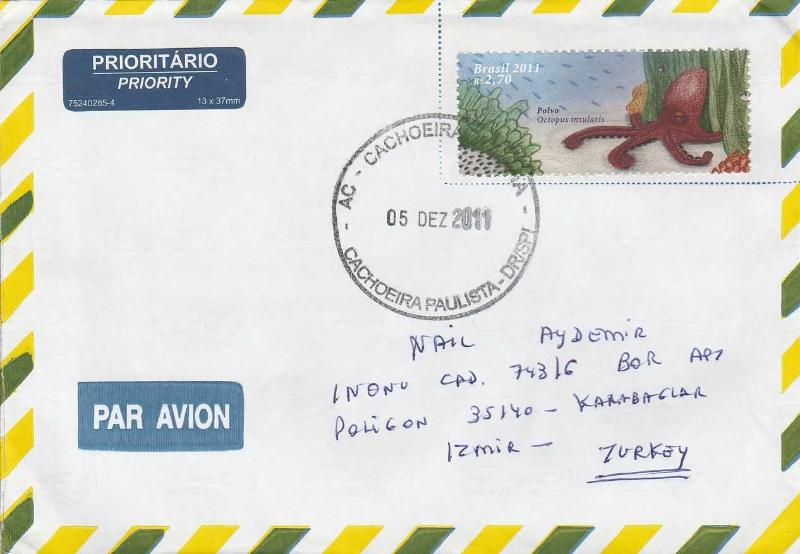 PRIORITÁRIO
PRIORITY
75240285-4 13 x 37mm
Brasil 2011
R$2,70
Polvo
Octopus insularis
AC - CACHOEIRA
05 DEZ 2011
CACHOEIRA PAULISTA - DR/SPI
PAR AVION
NAiL AYDEMİR
INONU CAD. 743/6 BOR APT
POLİGON 35140 - KARABAGLAR
IZMİR -
TURKEY